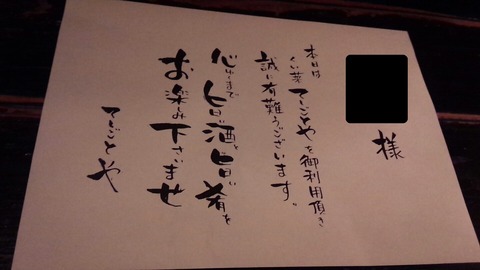 様
本日は
くい菜 てしごとやを御利用頂き
誠に有難うございます。
心ゆくまで
旨い酒、旨い肴を
お楽しみ下さいませ
てしごとや